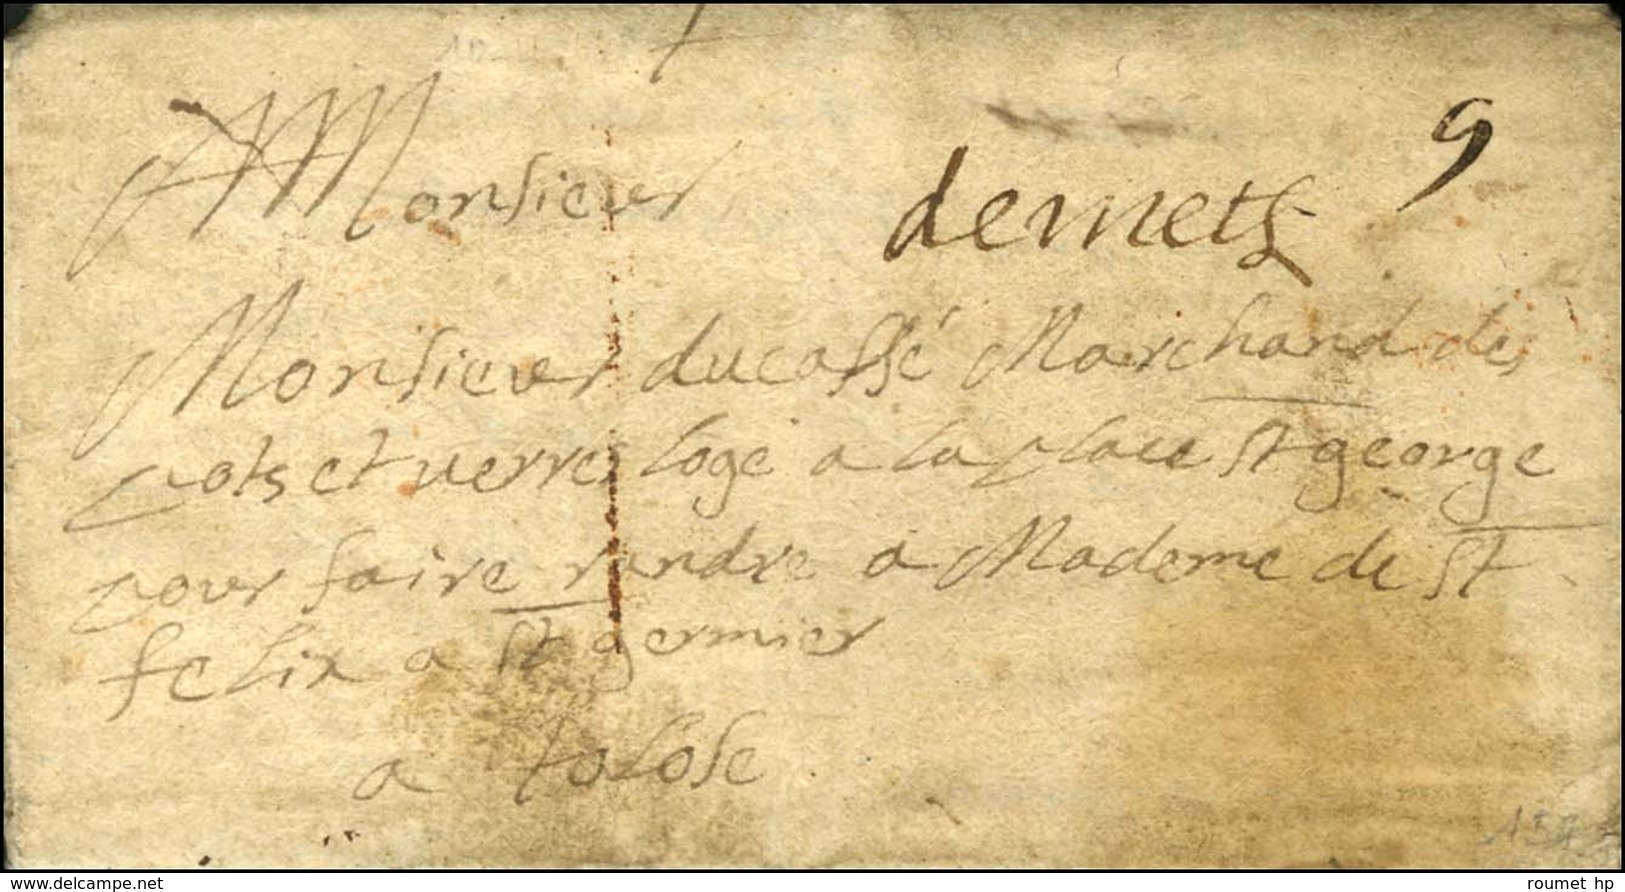 A Monsieur
demets 9
Monsieur ducassé Marchand de
pots et verres loge a la place st george
pour faire randre a Mademe de st
felix a st germier
a tolose
delcampe.net
roumet hp